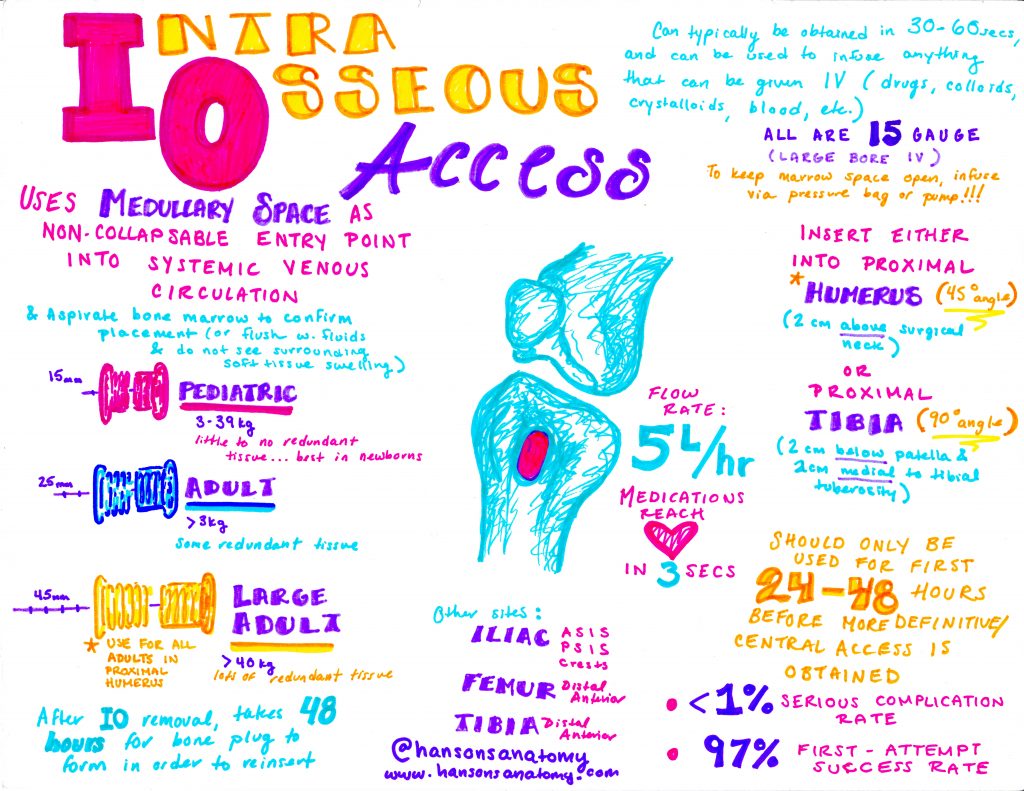 INTRA
OSSEOUS
Access
Can typically be obtained in 30-60secs,
and can be used to infuse anything
that can be given IV (drugs, colloids,
crystalloids, blood, etc.)
ALL ARE 15 GAUGE
(LARGE BORE IV)
To keep marrow space open, infuse
via pressure bag or pump!!!
USES MEDULLARY SPACE AS
NON-COLLAPSABLE ENTRY POINT
INTO SYSTEMIC VENOUS
CIRCULATION
& Aspirate bone marrow to confirm
placement (or flush w. fluids
& do not see surrounding
soft tissue swelling)
15mm
PEDIATRIC
3-39kg
little to no redundant
tissue... best in newborns
25mm
ADULT
>3kg
some redundant tissue
45mm
LARGE
ADULT
* USE FOR ALL
ADULTS IN
PROXIMAL
HUMERUS
>40kg
lots of redundant tissue
After IO removal, takes 48
hours for bone plug to
form in order to reinsert
FLOW
RATE:
5L/hr
MEDICATIONS
REACH
IN 3 SECS
Other sites:
ILIAC ASIS
PSIS
Crests
FEMUR Distal
Anterior
TIBIA Distal
Anterior
@hansonsanatomy
www.hansonsanatomy.com
INSERT EITHER
INTO PROXIMAL
* HUMERUS (45° angle)
(2 cm above surgical
neck)
OR
PROXIMAL
TIBIA (90° angle)
(2 cm below patella &
2cm medial to tibial
tuberosity)
SHOULD ONLY BE
USED FOR FIRST
24-48 HOURS
BEFORE MORE DEFINITIVE/
CENTRAL ACCESS IS
OBTAINED
• <1% SERIOUS COMPLICATION
RATE
• 97% FIRST-ATTEMPT
SUCCESS RATE